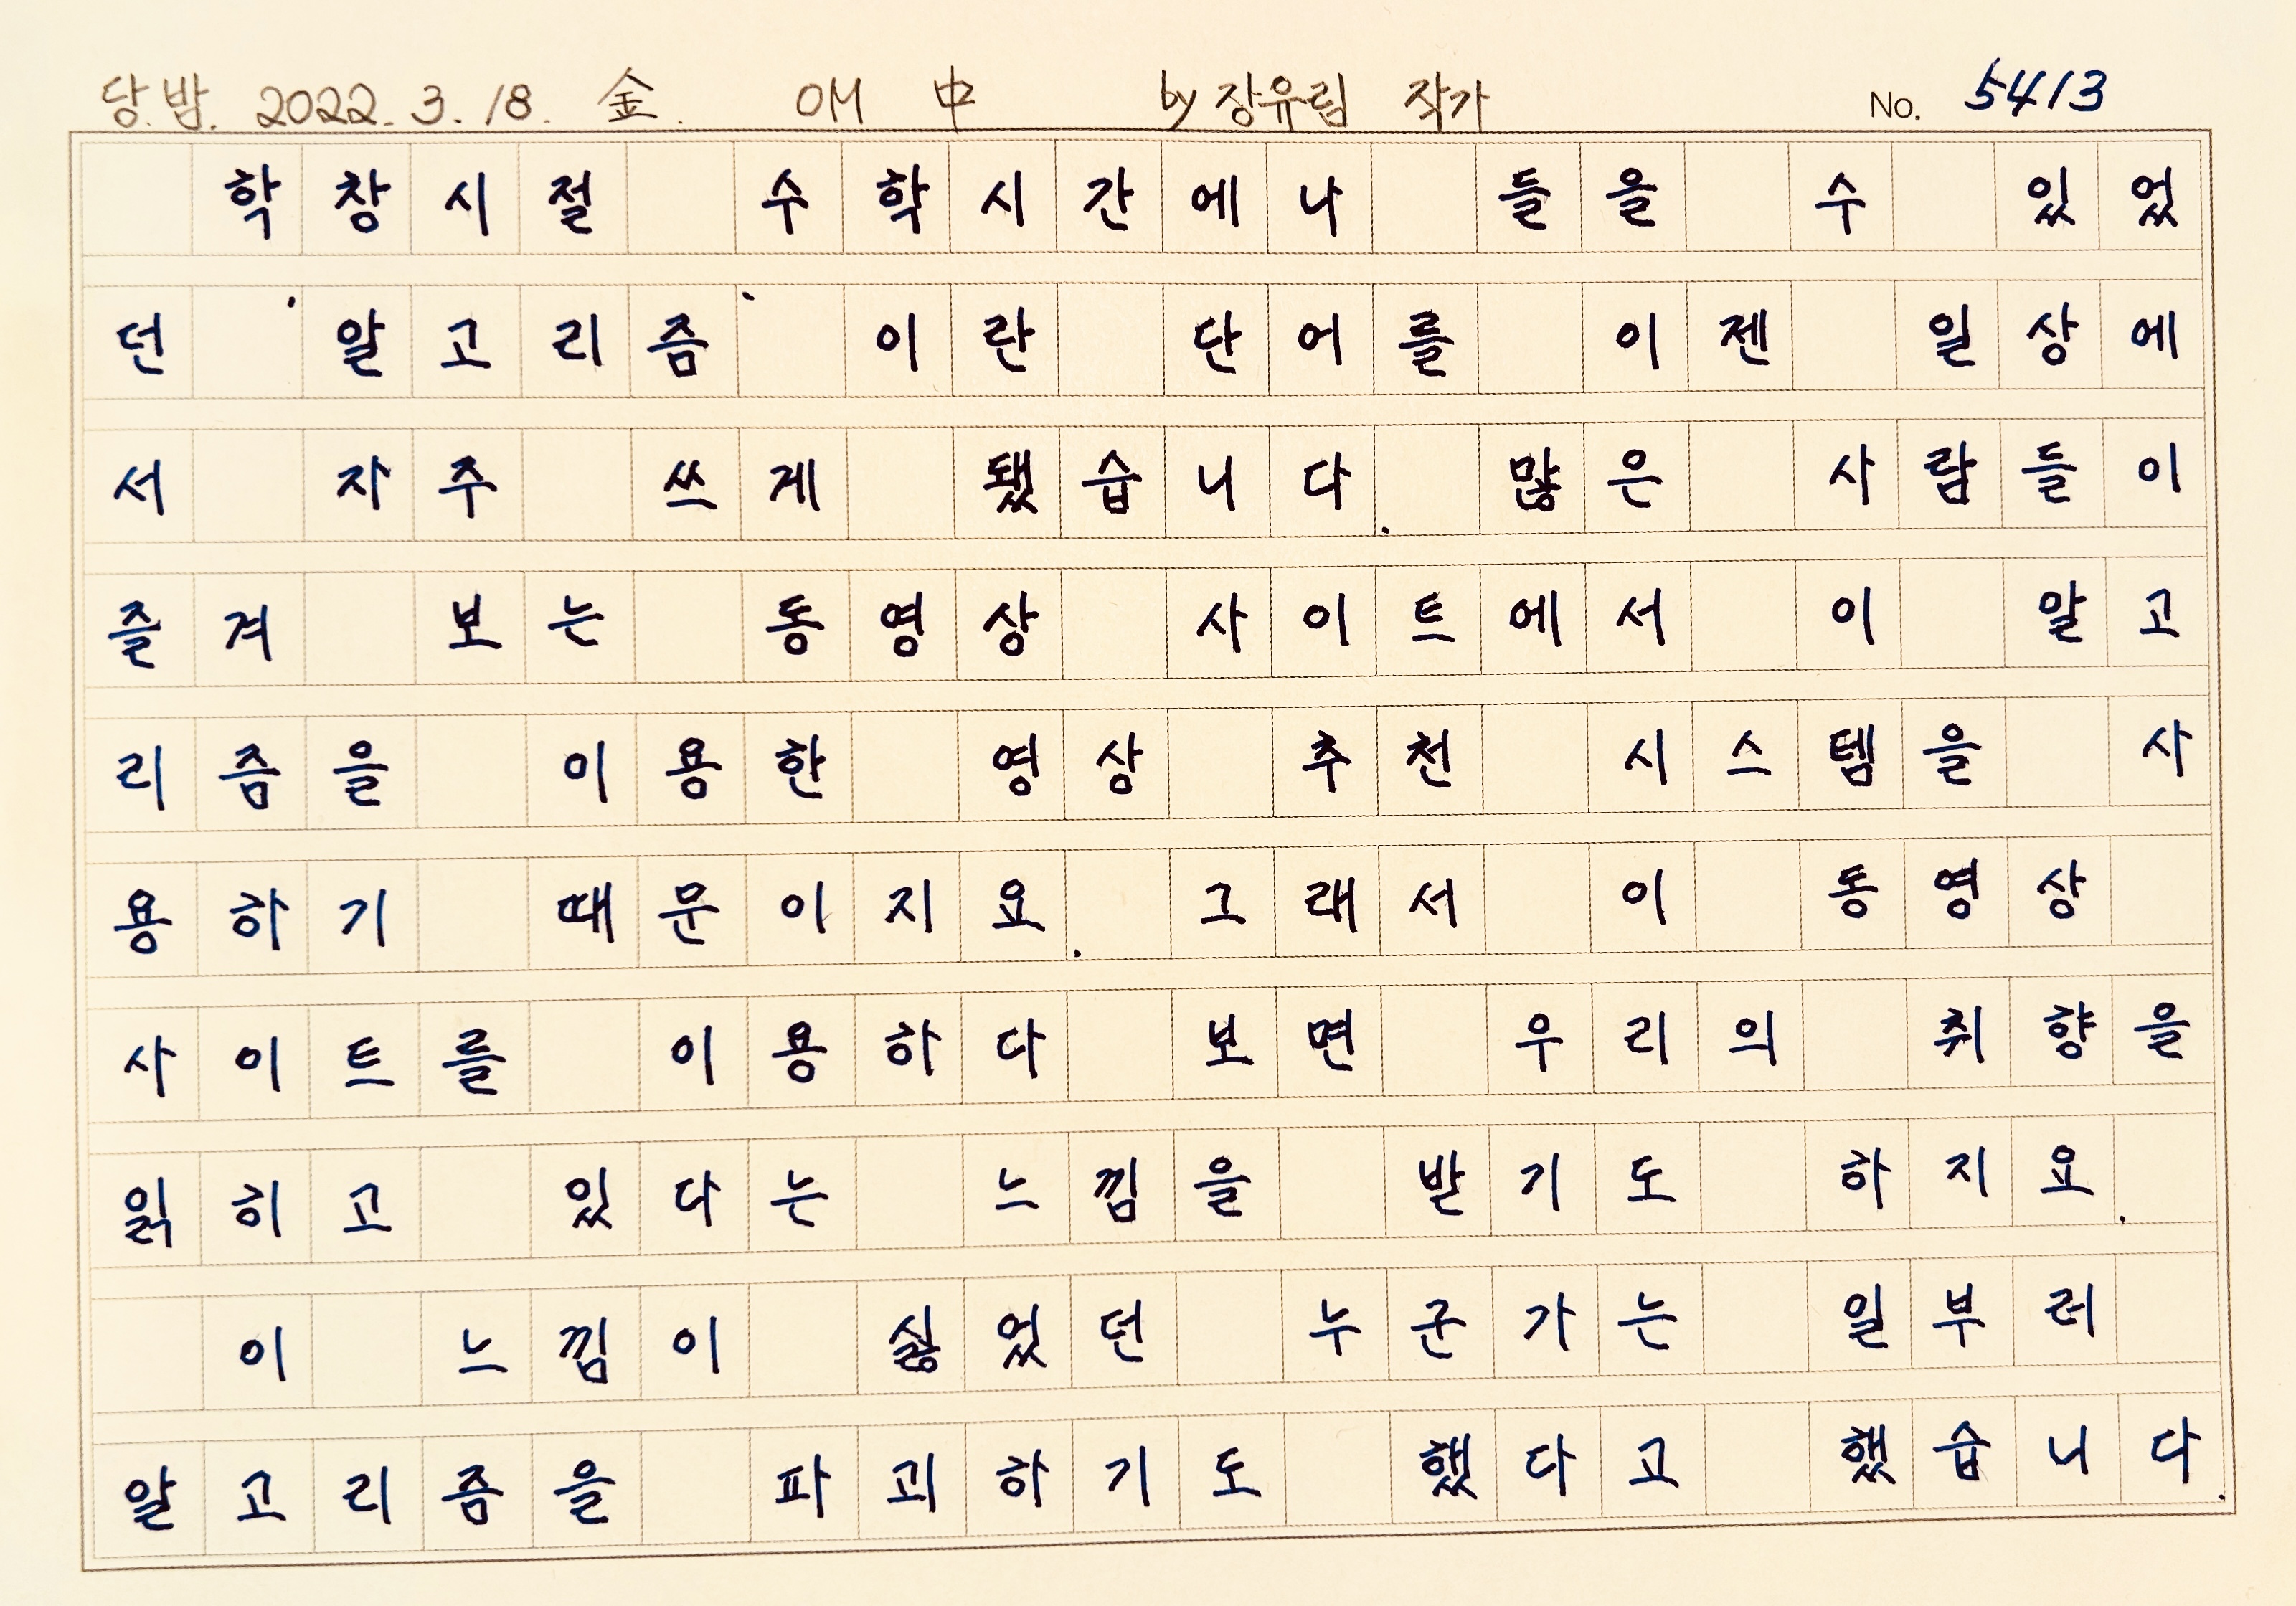 당.밤. 2022. 3. 18. 金. OM 中 by 장유림 작가 No. 5413
학창시절 수학시간에나 들을 수 있었
던 '알고리즘' 이란 단어를 이젠 일상에
서 자주 쓰게 됐습니다. 많은 사람들이
즐겨 보는 동영상 사이트에서 이 알고
리즘을 이용한 영상 추천 시스템을 사
용하기 때문이지요. 그래서 이 동영상
사이트를 이용하다 보면 우리의 취향을
읽히고 있다는 느낌을 받기도 하지요.
이 느낌이 싫었던 누군가는 일부러
알고리즘을 파괴하기도 했다고 했습니다.